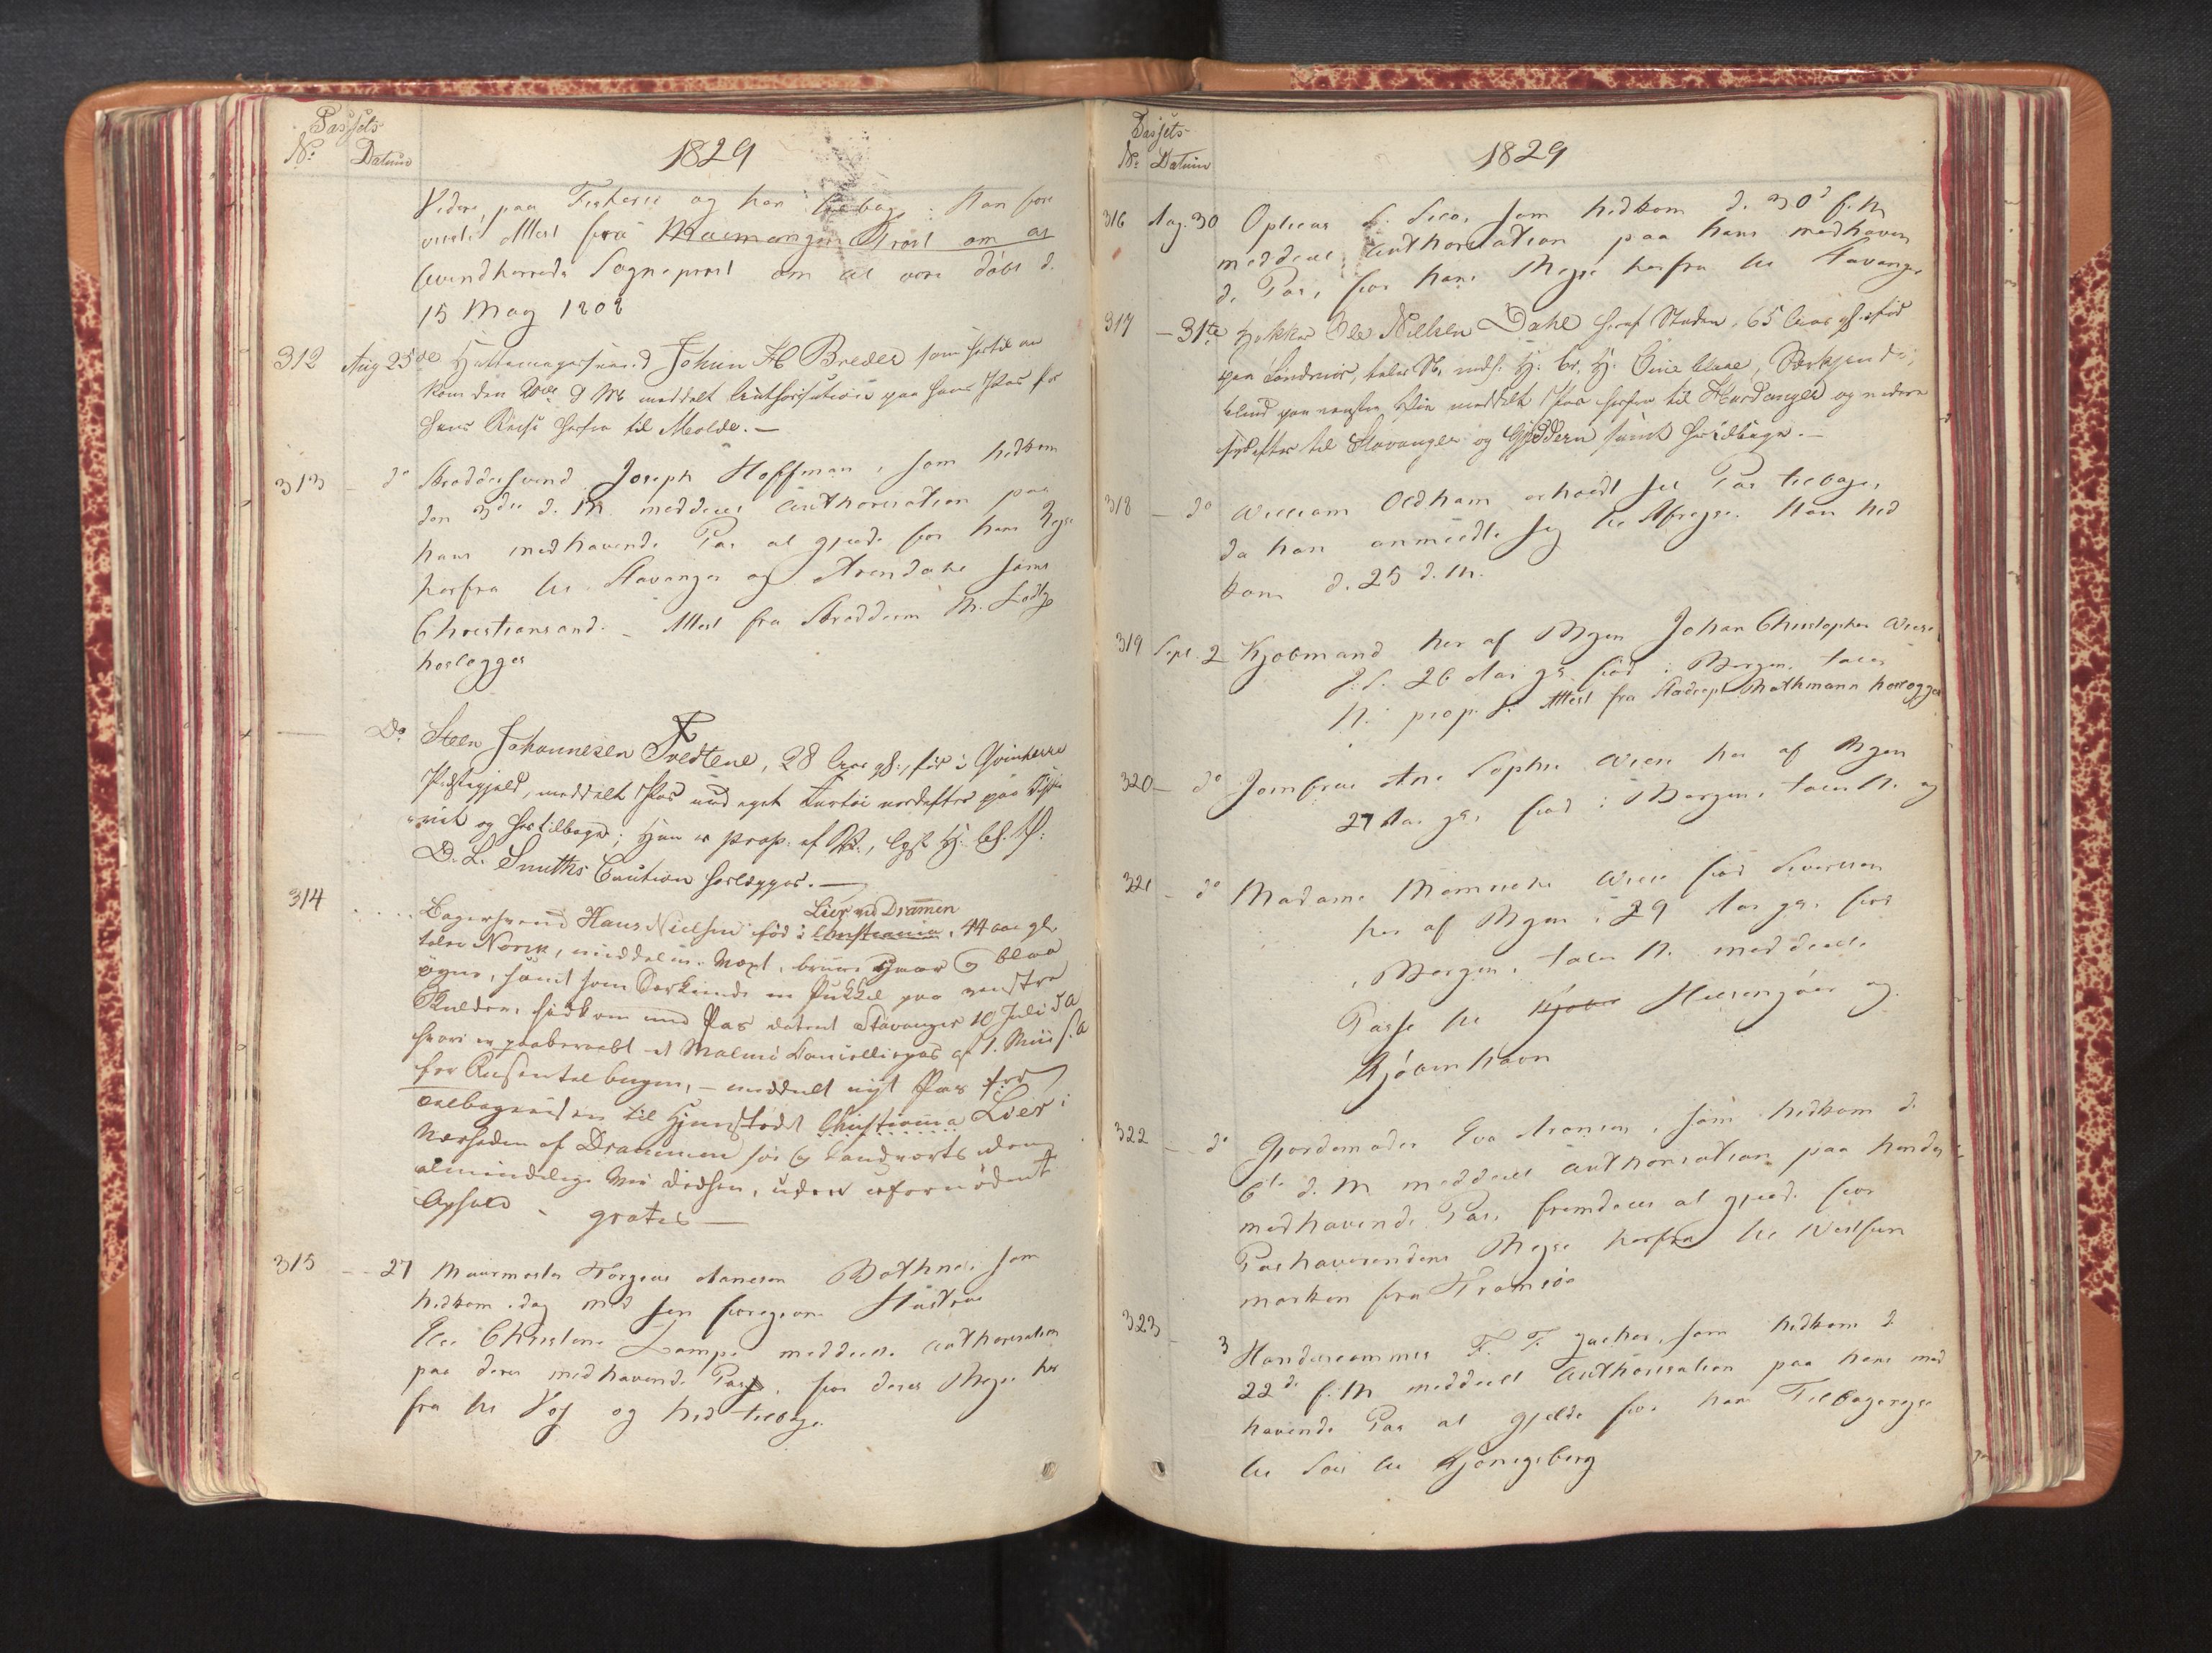 Passets
No Datum
1829
Videre, paa Fiskerie og her tilbage. Han fore
viiste Attest fra
Qvindherreds Sogneprest om at være døbt d.
15 May 1802
312 Aug 25de Hattemagersvend Johan H Breder som hertil an
kom den d M meddelt Authorisation paa hans Pas for
hans Reise herfra til Molde. —
313 — do Skræddersvend Joseph Hoffman, som hidkom
den 3die d. M. meddeelt Authorisation paa
hans medhavende Pas at gjelde for hans Rejse
herfra til Stavanger og Arendahl samt
Christiansand. — Attest fra Skrædderm M.
herlægges
— Do Steen Johannesen Tvedtene, 28 Aar gl., fød i Qvinherre
Præstegjeld, meddelt Pas med eget Fartøi nordefter paa Fiske
rie og hertilbage; Han er prop. af Vt.,
D. L. Smiths Caution herlægges. —
314 Bagersvend Hans Nielsen fød i Christiania Lier ved Dramen, 44 aar gl.
taler Norsk, middelm. Vext, bruun Haar og blaa
øyne, samt som Særkiende en Pukkel paa venstre
Skulder, hidkom med Pas dateret Stavanger 10 Juli d A
hvori er paaberaabt et Malmö Cancelliepas af 1. Mai s. A
for Reisen tilbagen, — meddelt nyt Pas for
tilbagereisen til Hjemstedet Christiania Lier i
Nærheden af Drammen søe og Landværts ad den
almindelige Vei didhen, uden ufornødent
Ophold - gratis —
315 — 27 Muurmester Torgeus Aanesen Bothner som
hidkom idag med sin foregivne Hustrue
Else Christine Lampe meddeelt Authorisation
paa deres medhavende Pas, for deres Rejse her
fra til Vos og hid tilbage.
Passets
No Datum
1829
316 Aug. 30 Opticus som hidkom d. 30d f. M
meddeelt Authorisation paa hans medhaven
de Pas, for hans Rejse herfra til Stavanger
317 — 31te Ole Nielsen Dahl heraf Staden, 65 Aar gl. fød
paa Søndmør, taler N., meddelt Pas herfra til Hardanger og videre
sydefter til Stavanger og Gjeddern samt hertilbage. —
318 — do William Oldham erholdt sit Pas tilbage,
da han anmeldte sig til Afrejse. Han hid
kom d. 25 d. M.
319 Sept. 2 Kjøbmand her af Byen Johan Christopher Wiese
26 Aar gl. fød i Bergen, taler
N. prop. Attest fra Stadscpt Rothmann herlægges
320 — do Jomfrue Ane Sophie Wiese her af Byen
27 Aar gl. fød i Bergen, taler N. og
321 — do Madame Wiese fød Sivertsen
her af Byen, 29 Aar gl. fød
i Bergen, taler N. meddeelt
Passe til Kjøben Helsingøer og
Kjøbenhavn
322 — do Gjordemoder Eva Aronsen, som hidkom d.
6te d. M. meddeelt Authorisation paa hendes
medhavende Pas, fremdeles at gjelde for
Pashaverindens Rejse herfra til Westfin
marken fra Tromsöe
323 — 3 Handelscommis F. F. som hidkom d.
22de f. M meddeelt Authorisation paa hans med
havende Pas at gjelde for hans Tilbagerejse
til Söes til Kjönigsberg